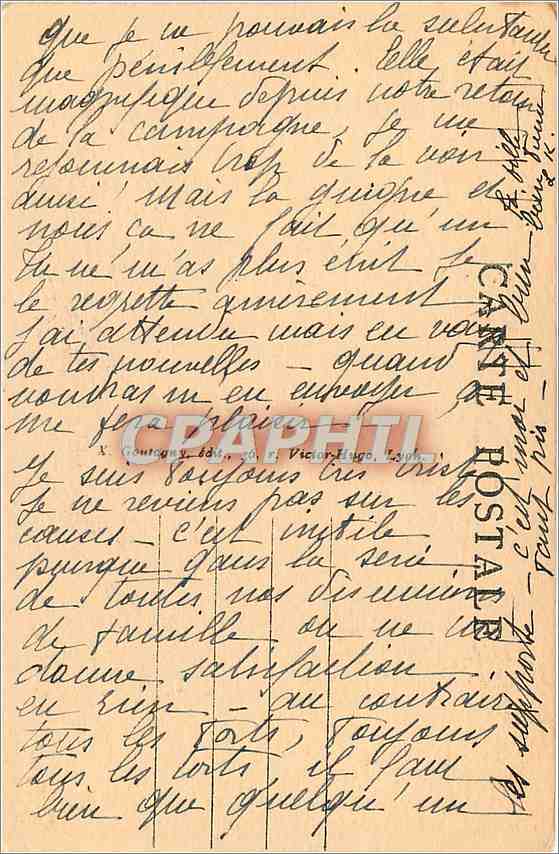 que je ne pouvais la substanter
que péniblement. Elle était
magnifique depuis notre retour
de la campagne, je me
réjouissais trop de la voir
aussi ! Mais la guigne et
nous ça ne fait qu'un
Tu ne m'as plus écrit je
le regrette amèrement
j'ai attendu mais en vain
de tes nouvelles – quand
voudras m'en envoyer ça
me fera plaisir –
X. Goutagny, édit., 50, r. Victor-Hugo, Lyon.
Je suis toujours très triste
Je ne reviens pas sur les
causes – c'est inutile
puisque dans la série
de toutes nos discussions
de famille on ne me
donne satisfaction
en rien – au contraire
tous les torts, toujours
tous les torts, il faut
bien que quelqu'un
les supporte – c'est moi et bien
tant pis –
CARTE POSTALE
CPAPHIL